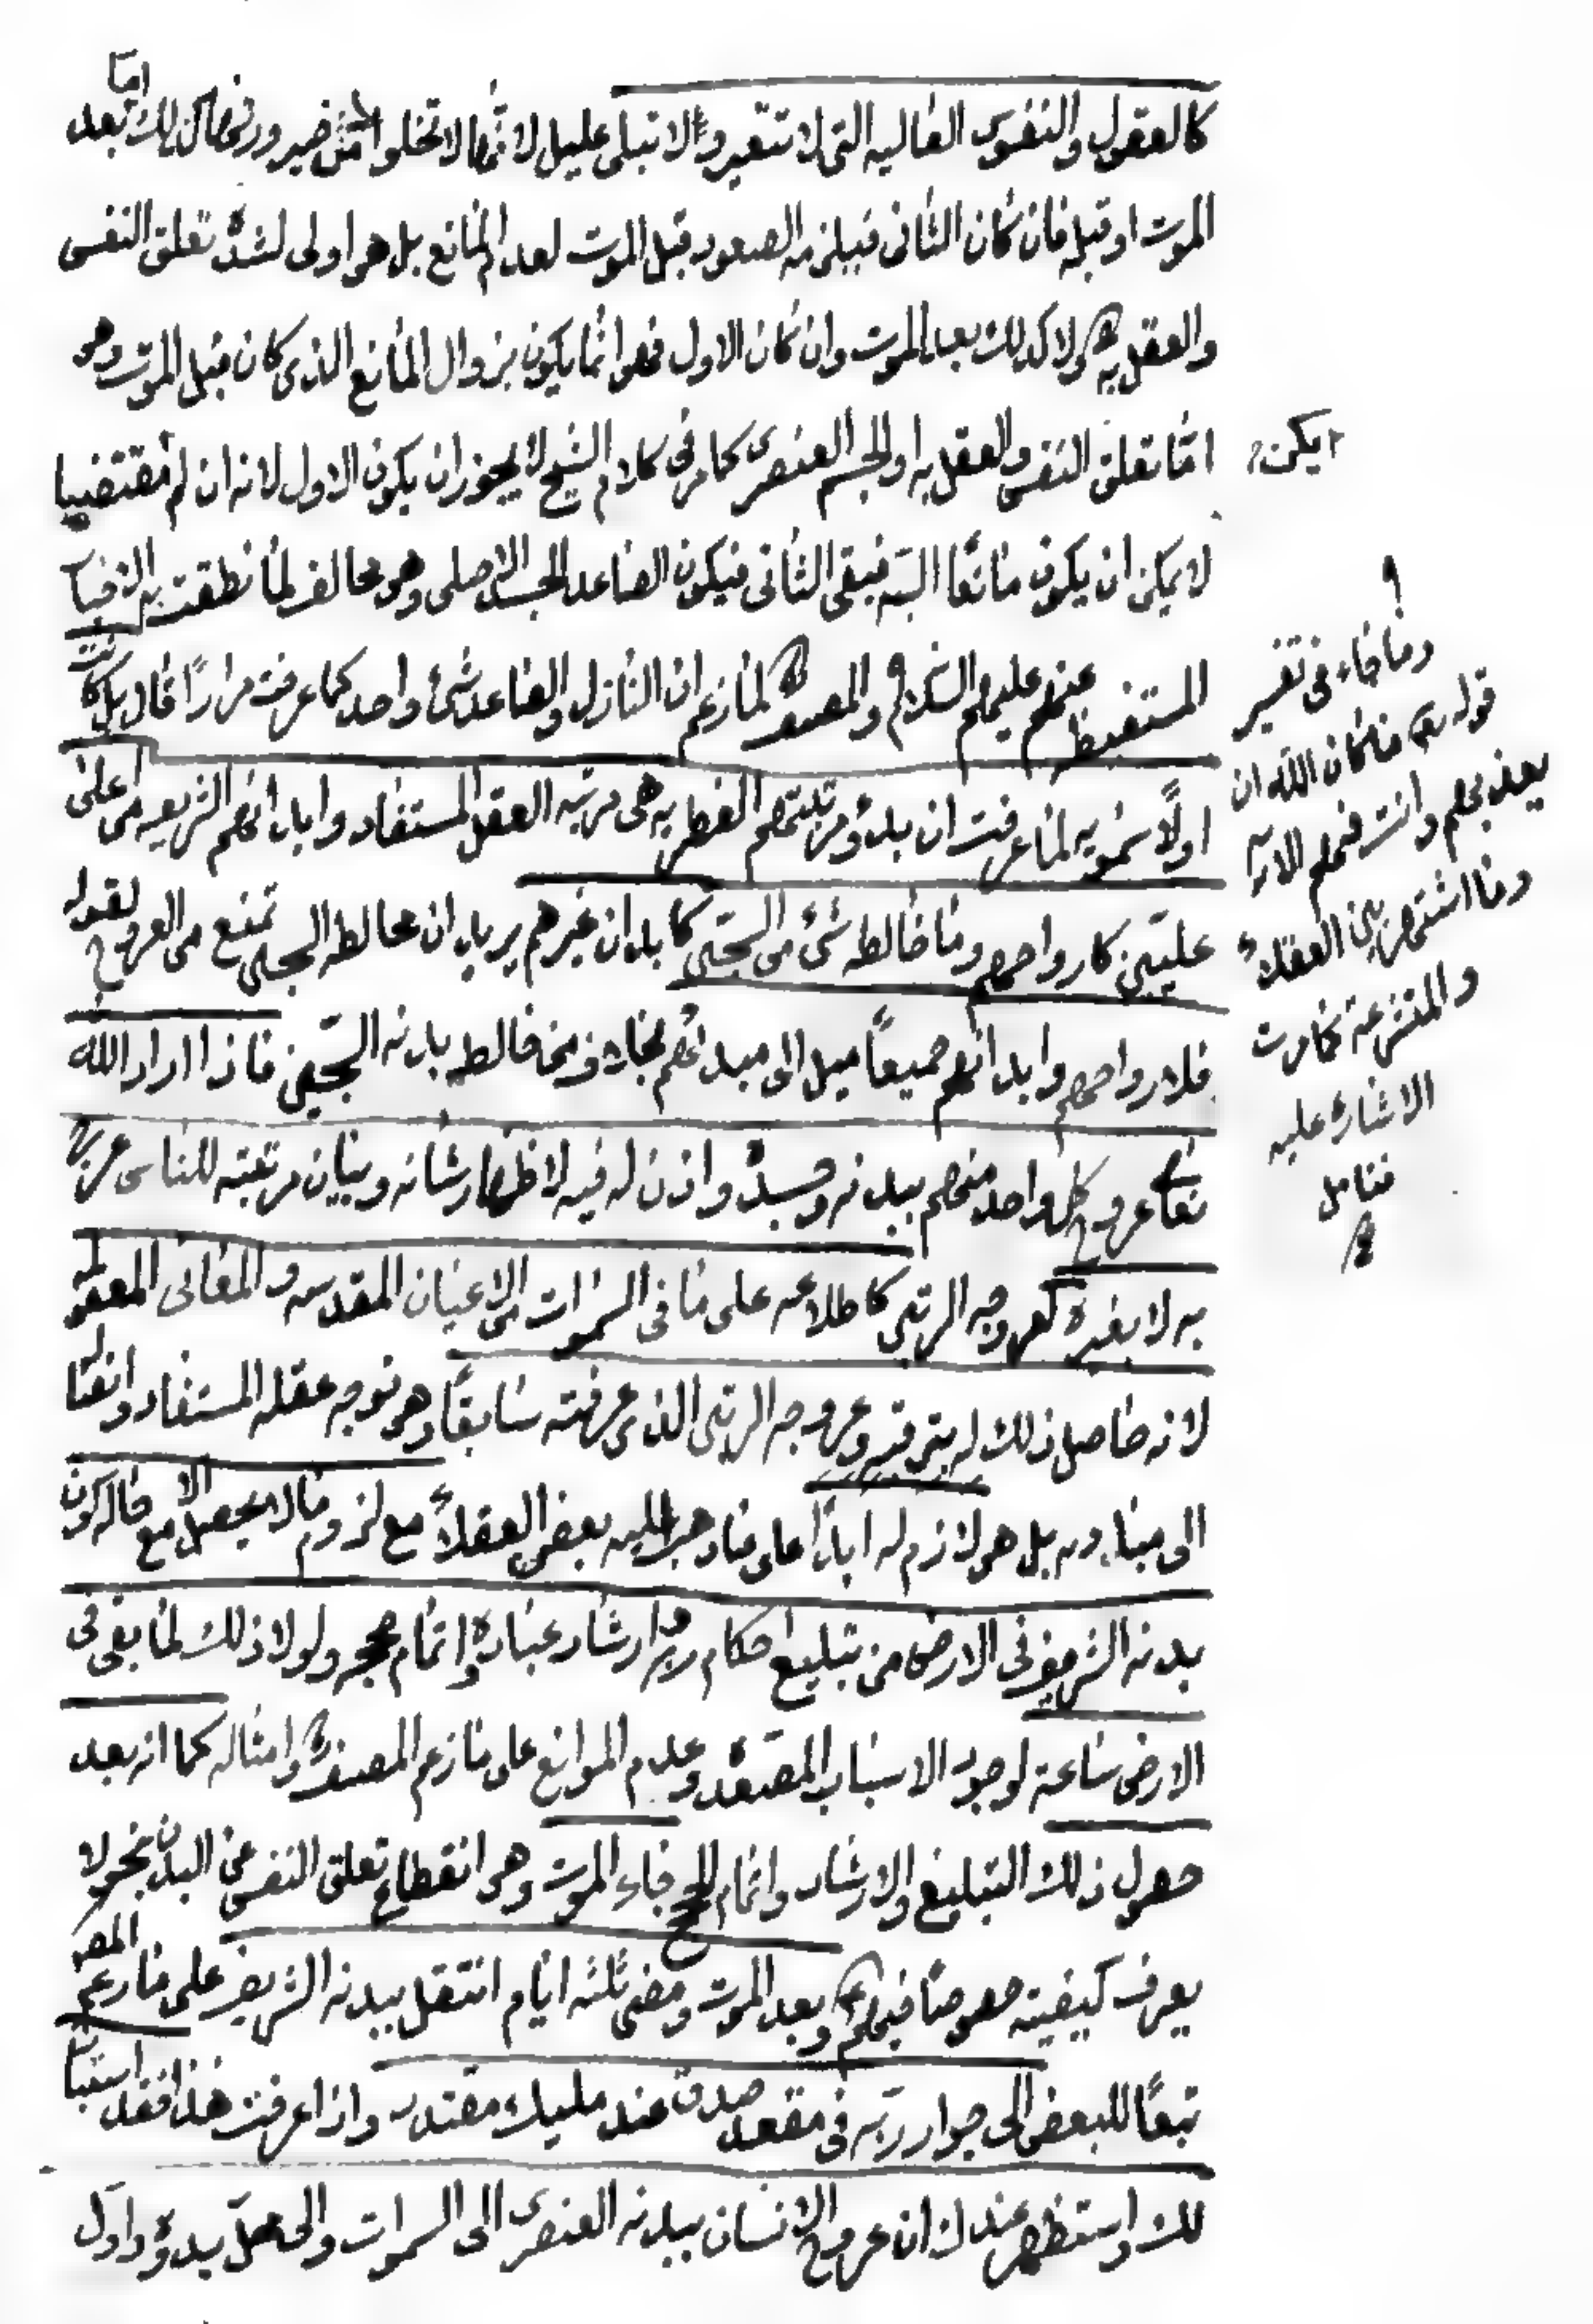 كالعقول والنفوس العاليه التى لا تتغير ولا تبلى عليل لانها لا تخلوا من ضيرورتها كذلك اما بعد
الموت او قبله فان كان الثانى فيلزمه الصعود قبل الموت لعدم المانع بل هو اولى لشدة تعلق النفس
والعقل به ولا كذلك بعد الموت وان كان الاول فهو انما يكون بزوال المانع الذى كان قبل الموت وهو
اما تعلق النفس والعقل به او الجسم العنصرى كما مر فى كلام الشيخ لا يجوز ان يكون الاول لانه ان لم يكن مقتضيا
لا يمكن ان يكون مانعا البته فيبقى الثانى فيكون الصاعد الجسد الاصلى وهو مخالف لما نطقت به
المستفيضة عنهم عليهم السلام والمصنف لما زعم ان النازل والصاعد شئ واحد كما عرفت مرارًا قال بل كانت
اولًا سمويه لما عرفت ان بدؤ مرتبتهم الفطريه هى مرتبه العقل المستفاد وابدانهم الشريعه من اعلى
عليين كارواحهم وما خالطه شئ من السجين كابدان غيرهم يريد ان مخالطه السجين تمنع من العروج لقوله
فلارواحهم وابدانهم جميعًا ميل الى مبدئهم بخلاف من خالط بدنه السجين فاذا اراد الله
تعالى عروج كل واحد منهم ببدنه وجسده واذن له فيه لاظهار شأنه وبيان مرتبته للناس عرج
به لا بغيره كعروجه الرتبى كاطلاعه على ما فى السموات من الاعيان المقدسه والمعانى المعقوله
لانه حاصل ذلك له بترقيه وعروجه الرتبى الذى عرفته سابقًا وهو توجه عقله المستفاد وانتقاله
الى مباديه بل هو لازم له ابدًا على ما ذهب اليه بعض العقلاء مع لزوم ما لا يحصل الا مع حاله كون
بدنه الشريف فى الارض من تبليغ احكام ربه وارشاد عباده واتمام حججه ولولا ذلك لما بقى فى
الارض ساعة لوجود الاسباب المصعده وعدم الموانع على ما زعم المصنف وامثاله كما انه بعد
حصول ذلك التبليغ والارشاد واتمام الحجج جاء الموت وهو انقطاع تعلق النفس عن البدن بنحو لا
يعرف كيفيته خصوصًا فيهم وبعد الموت ومضى ثلثه ايام انتقل ببدنه الشريف على ما زعم المصنف
تبعًا للبعض الى جوار ربه فى مقعد صدق عند مليك مقتدر واذا عرفت هذا فقد استبان
لك واستظهر عندك ان عروج الانسان ببدنه العنصرى الى السموات والى محل بدؤه واول
يكن
وما جاء فى تفسير
قوله تعالى ما كان الله ان
يعذبهم وانت فيهم الايه
وما اشتهر بين العقلاء
والمتشرعة كما مرت
الاشارة عليه
فتامل